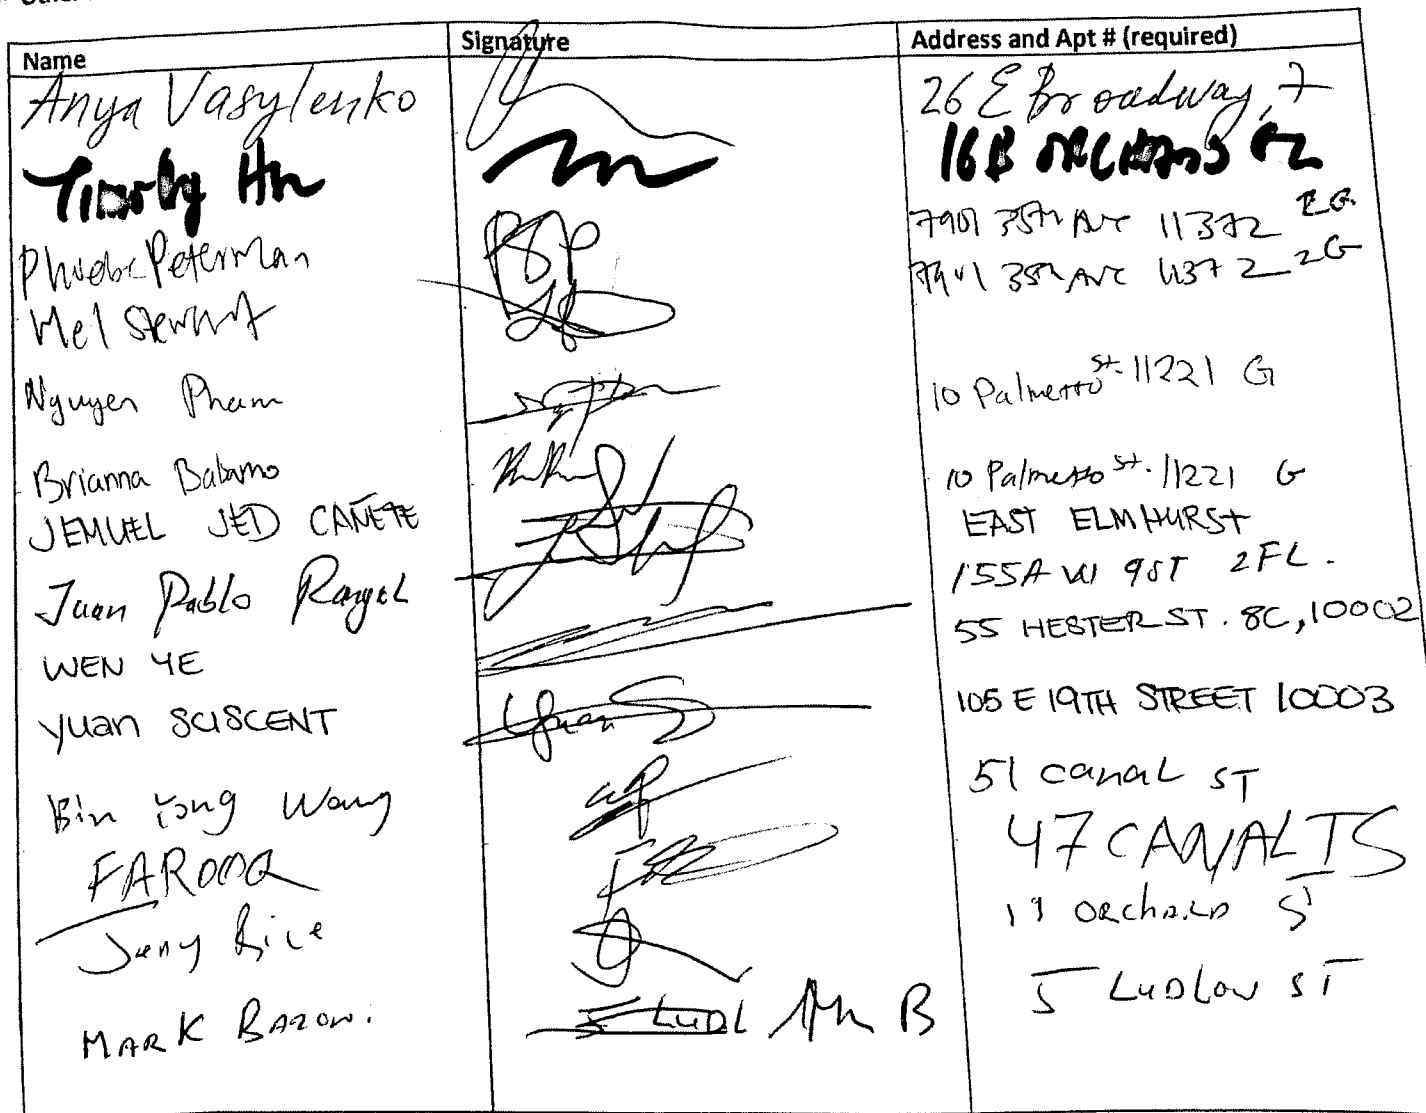 Name Signature Address and Apt # (required)
Anya Vasylenko 26 E Broadway, 7
Timothy 16B ORCHARD
Phoebe Peterman 7901 35th Ave 11372 2G
Mel Stewart 7901 35th Ave 11372 2G
Nguyen Pham 10 Palmetto St. 11221 G
Brianna Balamo 10 Palmetto St. 11221 G
JEMUEL JED CAÑETE EAST ELMHURST
Juan Pablo Rangel 155A W 9ST 2FL.
WEN YE 55 HESTER ST. 8C, 10002
Yuan SCISCENT Yuan S 105 E 19TH STREET 10003
Bin Yong Wang 51 canal ST
FAROOQ 47 CANAL
Rice Orchard
MARK 5 LUDL B 5 LUDLOW ST